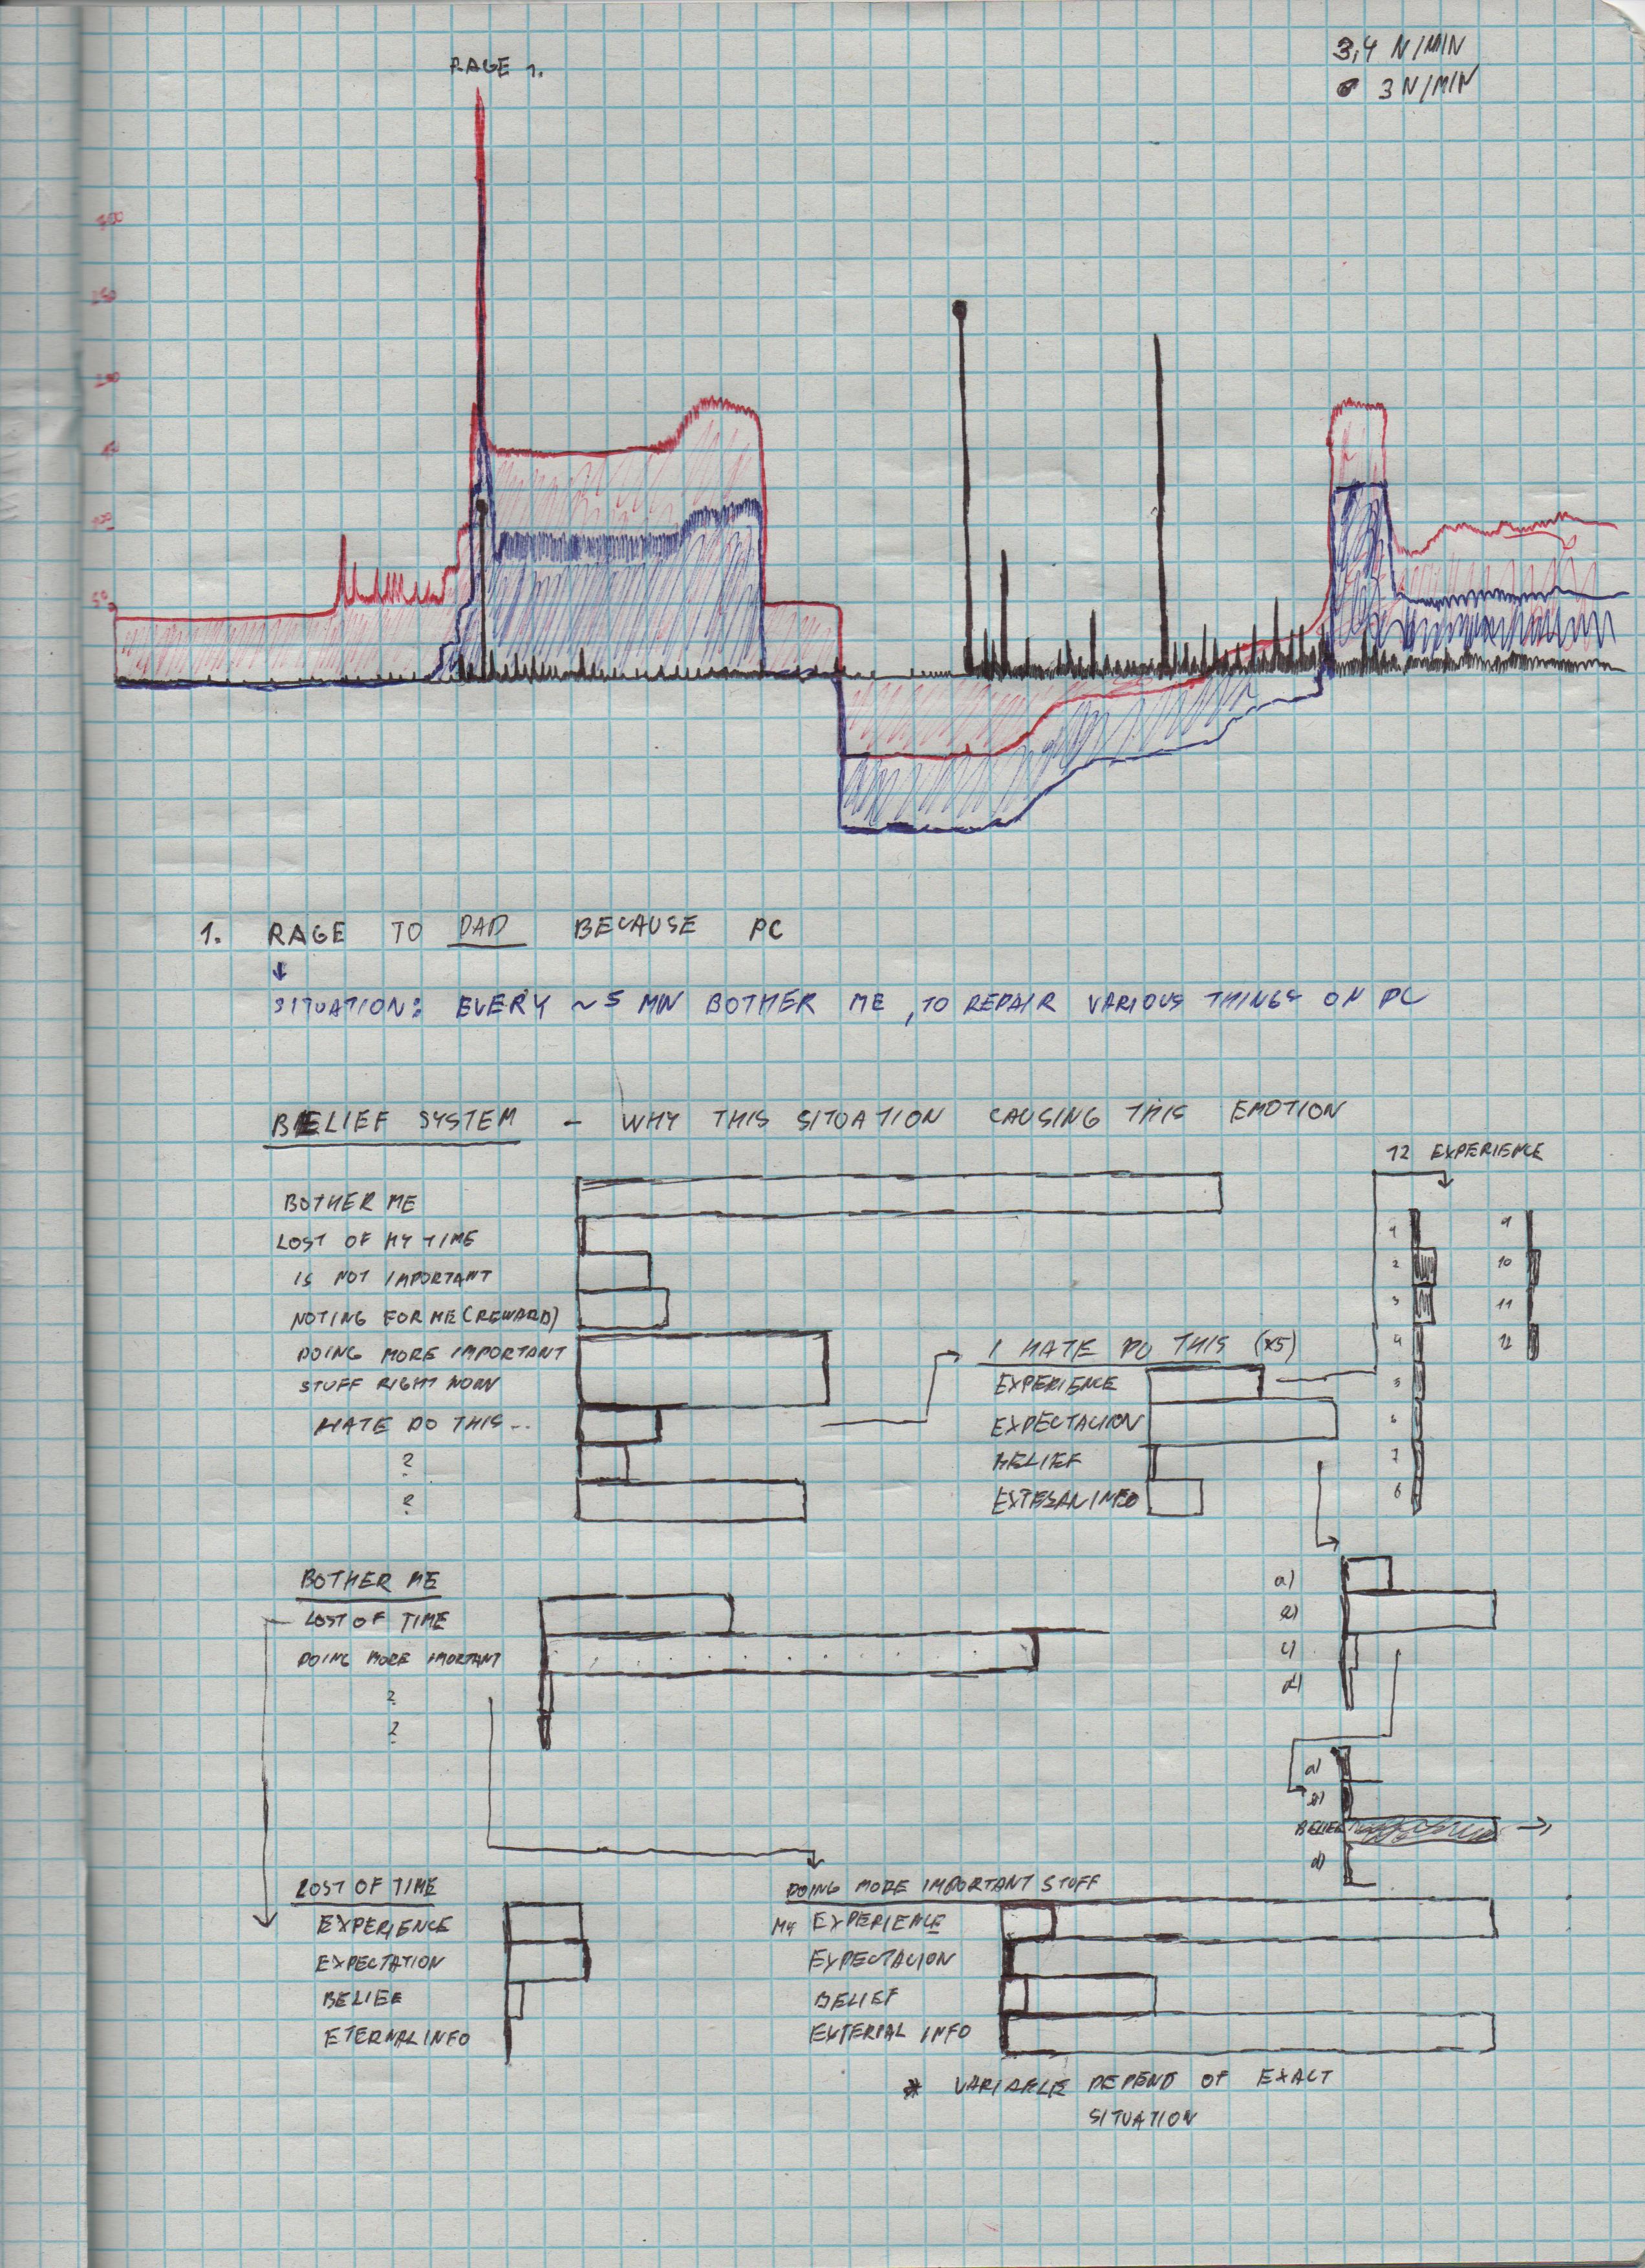 RAGE 1.
3,4 N/MIN
3 N/MIN
300
250
200
150
100
50
1. RAGE TO DAD BECAUSE PC
SITUATION: EVERY ~5 MIN BOTHER ME, TO REPAIR VARIOUS THINGS ON PC
BELIEF SYSTEM - WHY THIS SITUATION CAUSING THIS EMOTION
12 EXPERIENCE
BOTHER ME
LOST OF MY TIME
IS NOT IMPORTANT
NOTING FOR ME (REWARD)
DOING MORE IMPORTANT
STUFF RIGHT NOW
HATE DO THIS..
?
?
I HATE DO THIS (x5)
EXPERIENCE
EXPECTACION
BELIEF
1
2
3
4
5
6
7
8
9
10
11
12
BOTHER ME
LOST OF TIME
DOING MORE IMORTANT
?
?
a)
c)
d)
a)
BELIEF
d)
LOST OF TIME
EXPERIENCE
EXPECTATION
BELIEF
ETERNAL INFO
DOING MORE IMPORTANT STUFF
MY EXPERIENCE
EXPECTACION
BELIEF
EXTERNAL INFO
* VARIABLE DEPEND OF EXACT
SITUATION